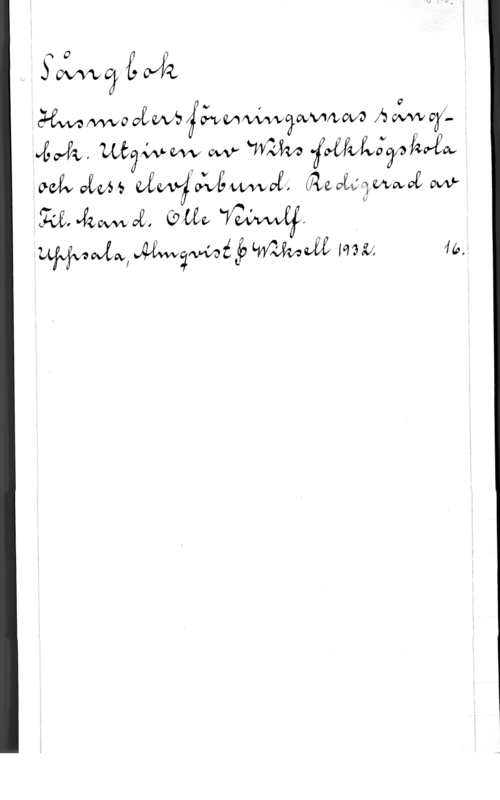 Sångbok
Husmodersföreningarnas sång-
bok. Utgiven av Wiks folkhögskola
och dess elevförbund. Redigerad av
Fil. kand. Olle Veirulf.
Uppsala, Almqvist & Wiksell 1932. 16.